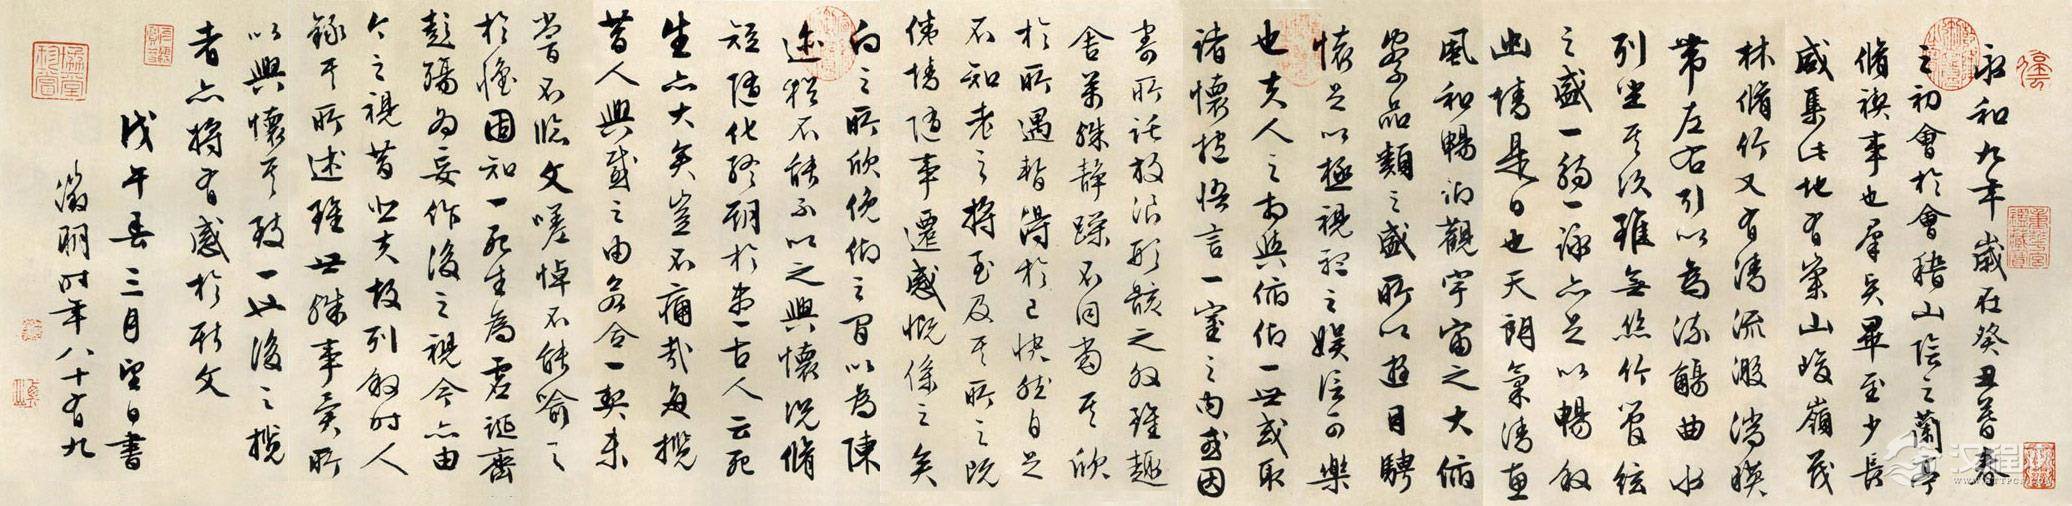 永和九年歲在癸丑暮春
之初會於會稽山陰之蘭亭
脩禊事也羣賢畢至少長
咸集此地有崇山峻嶺茂
林脩竹又有清流激湍暎
帶左右引以為流觴曲水
列坐其次雖無絲竹管絃
之盛一觴一詠亦足以暢敘
幽情是日也天朗氣清惠
風和暢仰觀宇宙之大俯
察品類之盛所以遊目騁
懷足以極視聽之娛信可樂
也夫人之相與俯仰一世或取
諸懷抱悟言一室之內或因
寄所託放浪形骸之外雖趣
舍萬殊靜躁不同當其欣
於所遇暫得於己快然自足
不知老之將至及其所之既
倦情隨事遷感慨係之矣
向之所欣俛仰之間以為陳
迹猶不能不以之興懷況脩
短隨化終期於盡古人云死
生亦大矣豈不痛哉每攬
昔人興感之由若合一契未
嘗不臨文嗟悼不能喻之
於懷固知一死生為虛誕齊
彭殤為妄作後之視今亦由
今之視昔悲夫故列敘時人
錄其所述雖世殊事異所
以興懷其致一也後之攬
者亦將有感於斯文
戊午春三月望日書
徵明時年八十有九
汉程网